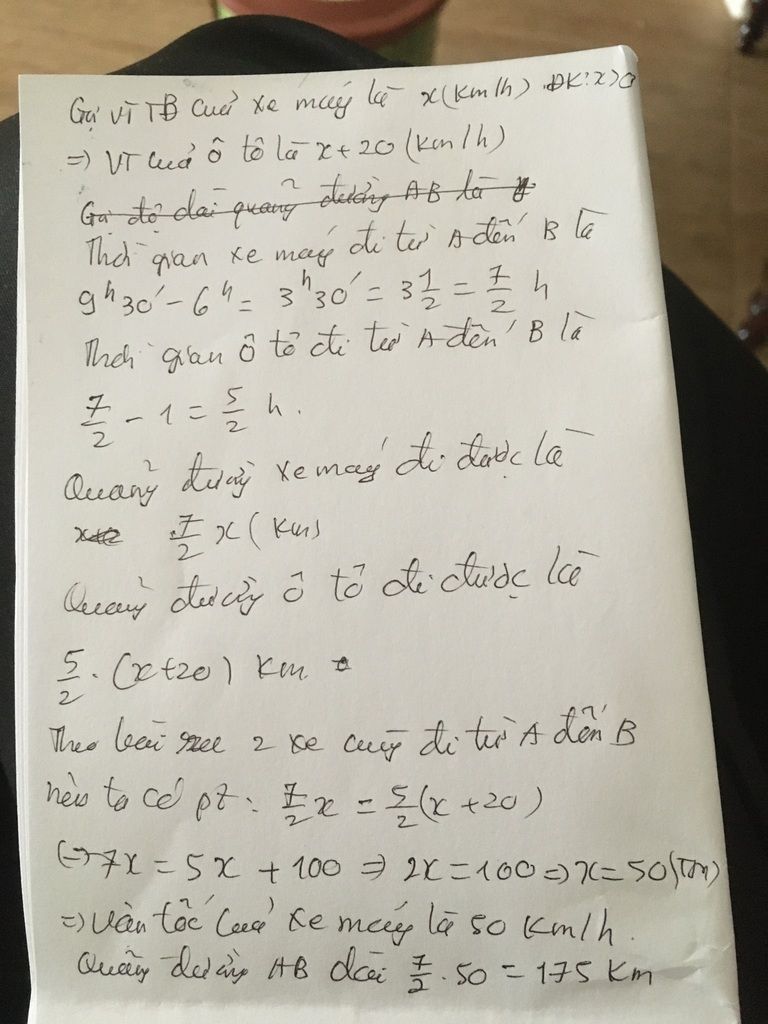 Gọi VT TB của xe máy là x (Km/h) ĐK: x>0
=> VT của ô tô là x + 20 (Km/h)
Gọi độ dài quãng đường AB là
Thời gian xe máy đi từ A đến B là
9h30' - 6h = 3h30' = 3 1/2 = 7/2 h
Thời gian ô tô đi từ A đến B là
7/2 - 1 = 5/2 h.
Quãng đường xe máy đi được là
7/2 x (Km)
Quãng đường ô tô đi được là
5/2 . (x+20) Km
Theo bài 2 xe cùng đi từ A đến B
nên ta có pt: 7/2 x = 5/2 (x + 20)
(=> 7x = 5x + 100 => 2x = 100 => x = 50 (TM)
=> Vận tốc của xe máy là 50 Km/h.
Quãng đường AB dài 7/2 . 50 = 175 Km